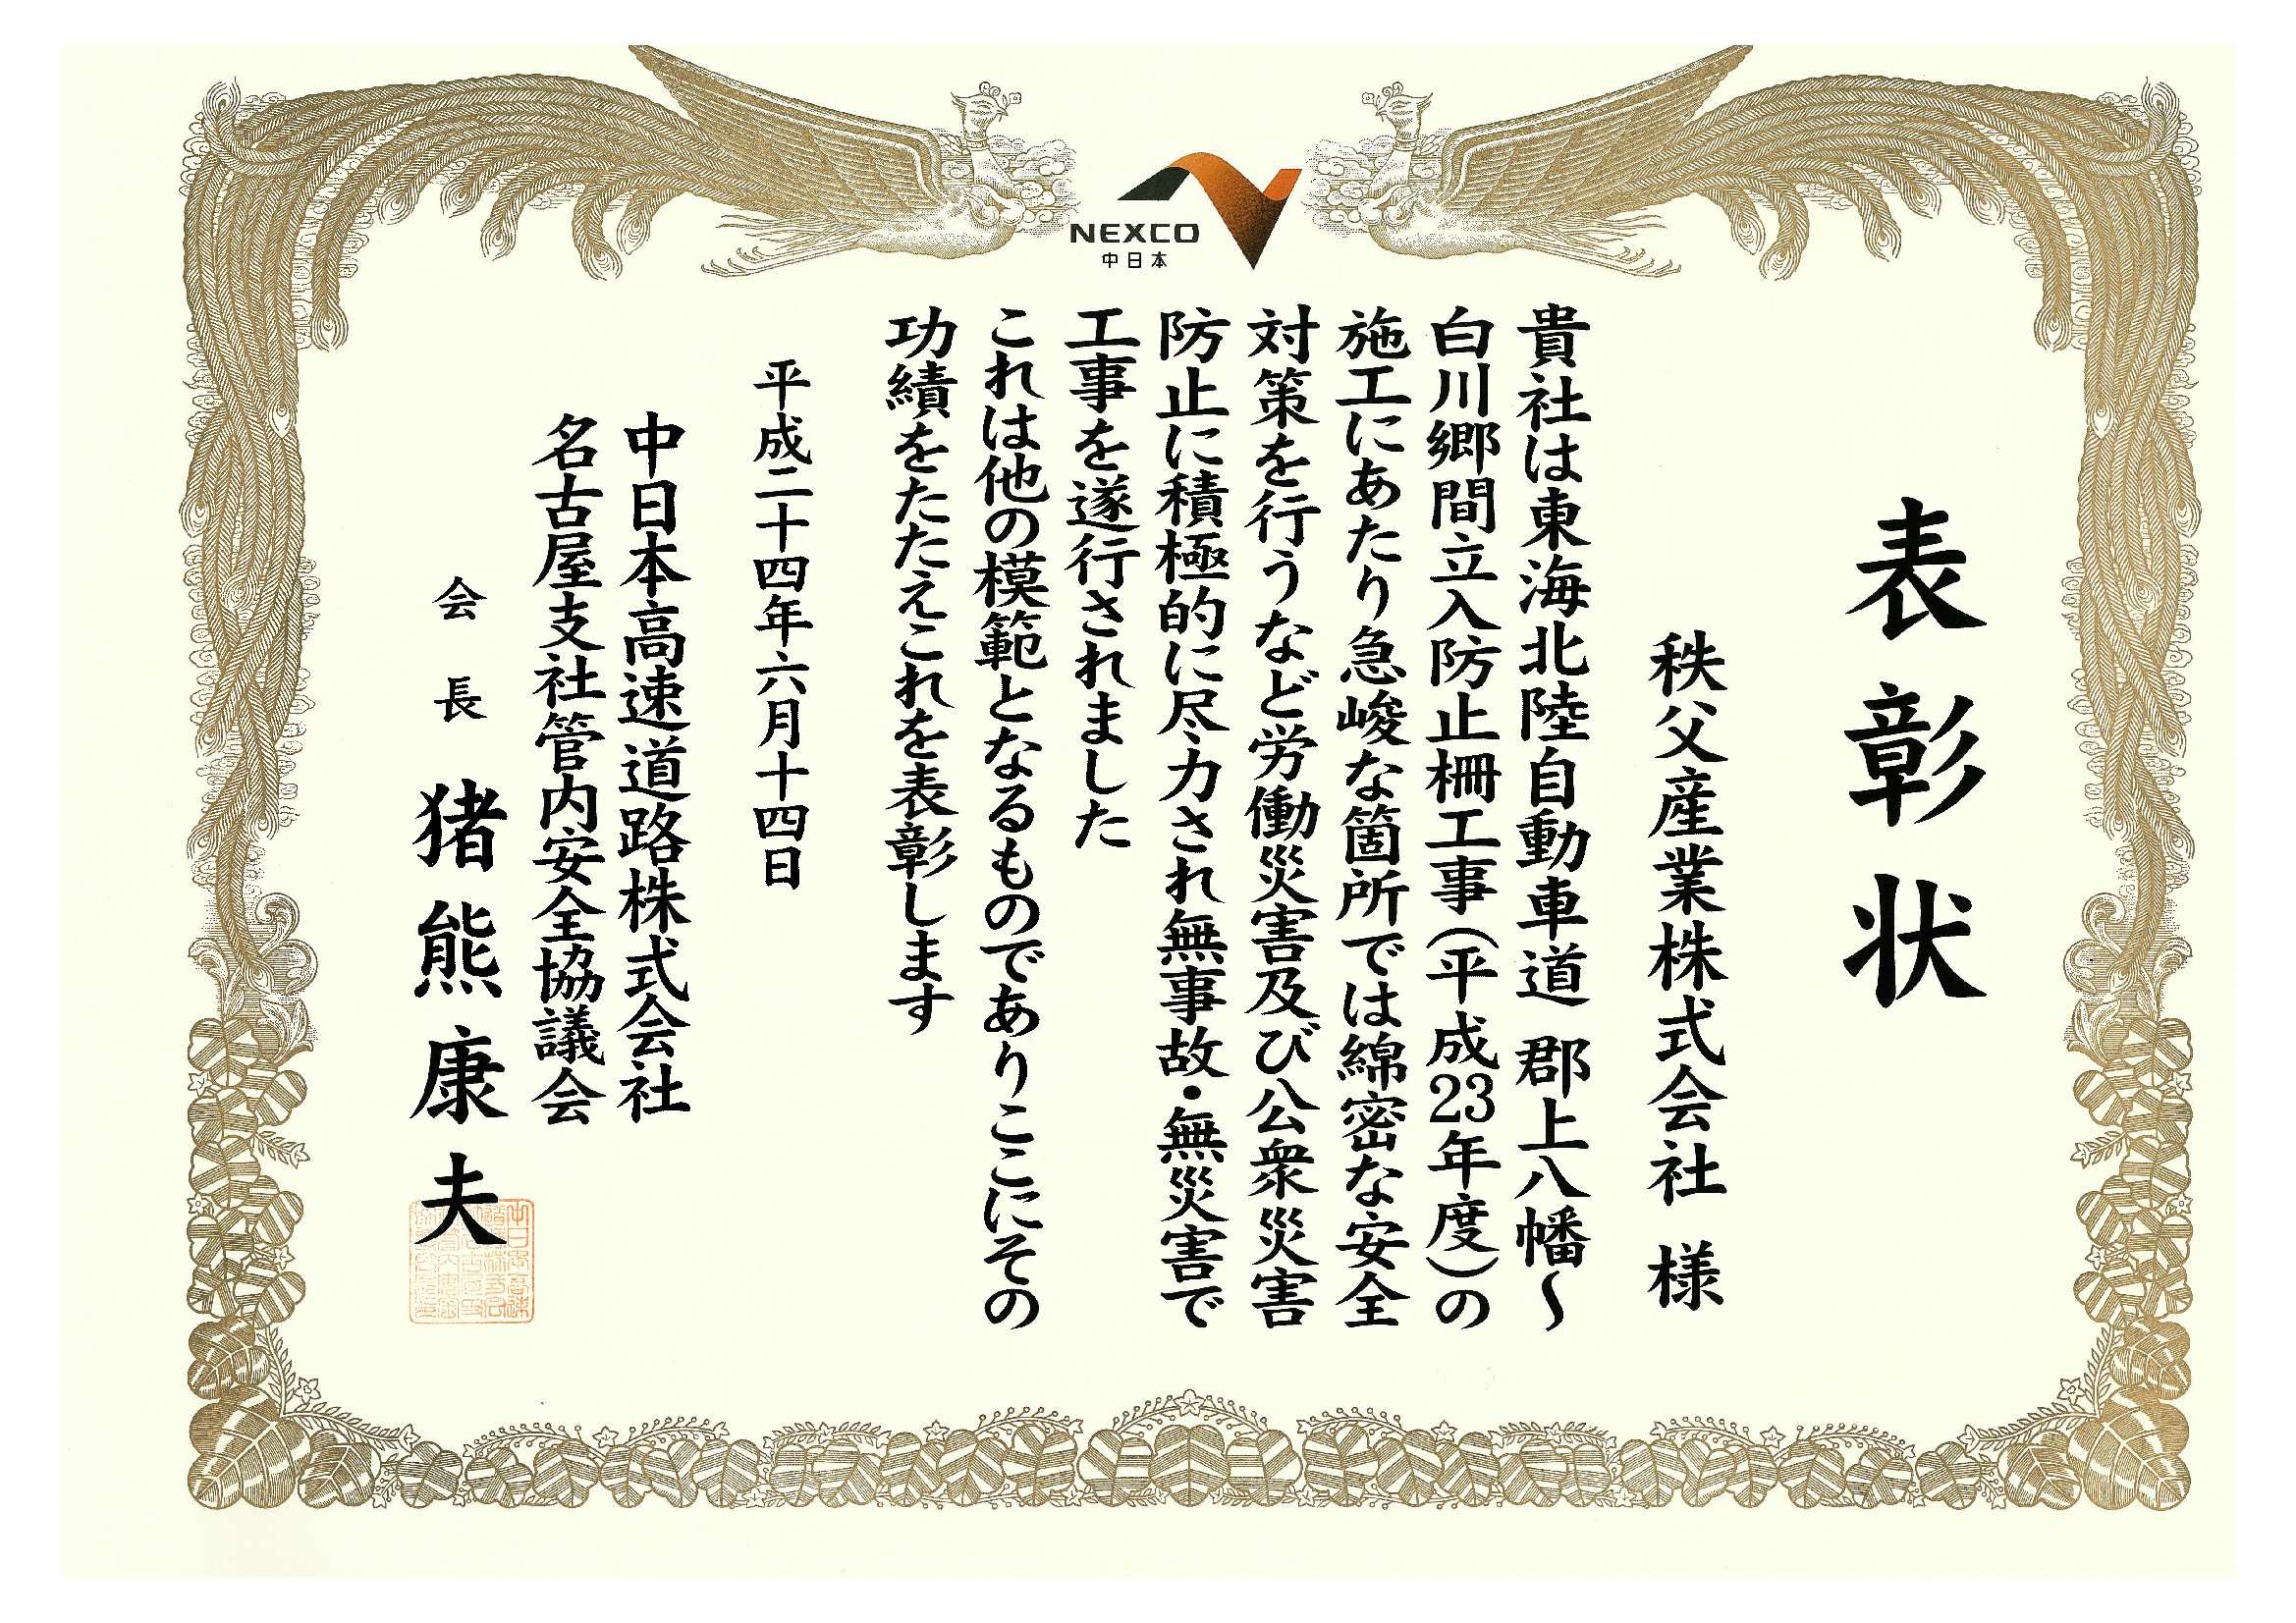 NEXCO
中日本
表彰状
秩父産業株式会社 様
貴社は東海北陸自動車道 郡上八幡～
白川郷間立入防止柵工事（平成23年度）の
施工にあたり急峻な箇所では綿密な安全
対策を行うなど労働災害及び公衆災害
防止に積極的に尽力され無事故・無災害で
工事を遂行されました
これは他の模範となるものでありここにその
功績をたたえこれを表彰します
平成二十四年六月十四日
中日本高速道路株式会社
名古屋支社管内安全協議会
会長 猪熊康夫